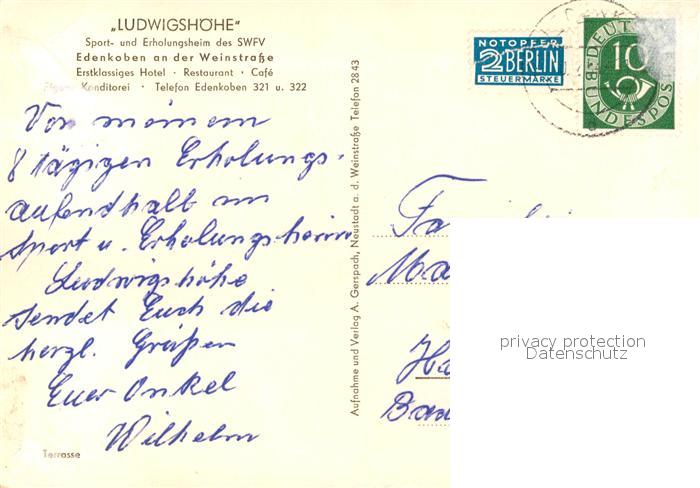 „LUDWIGSHÖHE"
Sport- und Erholungsheim des SWFV
Edenkoben an der Weinstraße
Erstklassiges Hotel · Restaurant · Café
Eigene Konditorei · Telefon Edenkoben 321 u. 322
Von meinem
8 tägigen Erholungs-
aufendhalt im
Sport u. Erholungsheim
Ludwigshöhe
sendet Euch die
herzl. Grüßen
Euer Onkel
Wilhelm
Terrasse
Aufnahme und Verlag A. Gerspach, Neustadt a. d. Weinstraße Telefon 2843
NOTOPFER
2 BERLIN
STEUERMARKE
10
DEUTSCHE
BUNDESPOST
privacy protection
Datenschutz